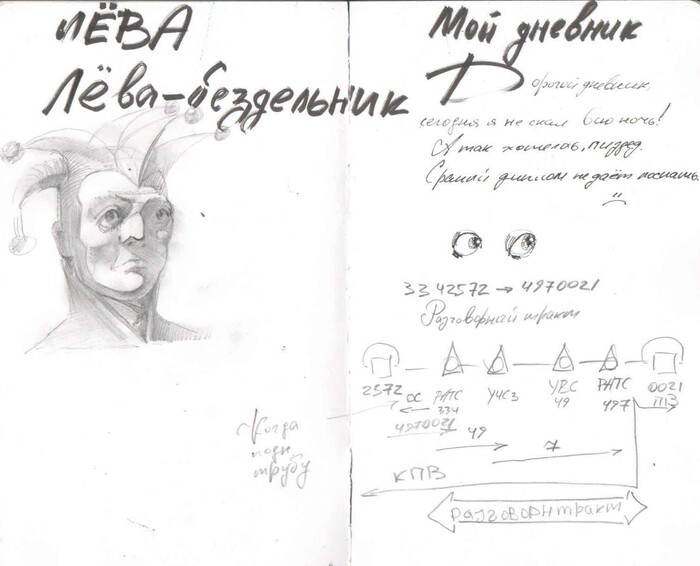 ЛЁВА
Лёва-бездельник
Когда
подн
трубу
Мой дневник
Дорогой дневник,
сегодня я не спал всю ночь!
А так хотелось, пиздец.
Сраный диплом не даёт поспать.
3342572 → 4970021
Разговорный тракт
2572 ОС РАТС УЧСЗ УВС РАТС 0021
334 49 497 ПВ
4970021
49
7
КПВ
разговорн тракт